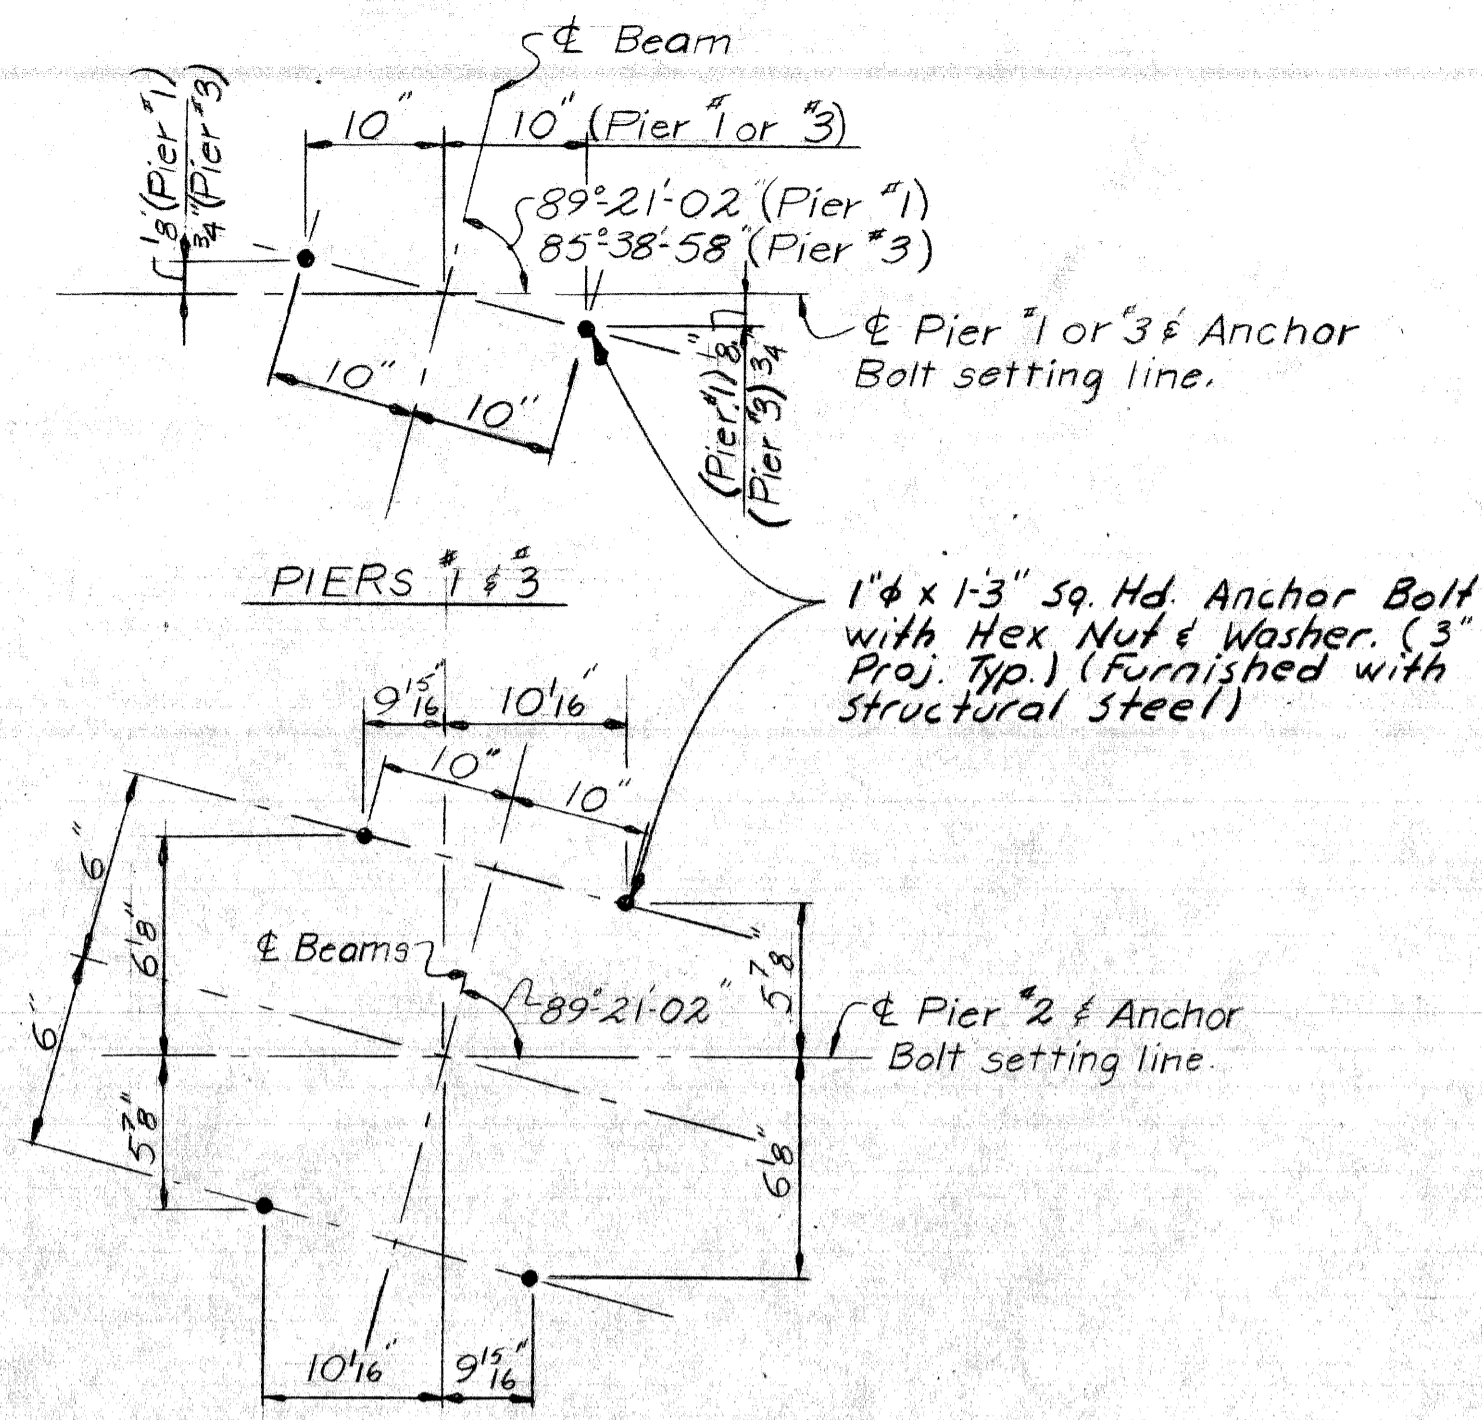 ℄ Beam
10"
10" (Pier #1 or #3)
1/8" (Pier #1)
3/4" (Pier #3)
89°-21'-02" (Pier #1)
85°-38'-58" (Pier #3)
℄ Pier #1 or #3 & Anchor
Bolt setting line.
10"
10"
(Pier #1) 1/8"
(Pier #3) 3/4"
PIERS #1 & #3
1"ϕ x 1'-3" Sq. Hd. Anchor Bolt
with Hex Nut & Washer. (3"
Proj. Typ.) (Furnished with
Structural Steel)
9 15/16"
10 1/16"
10"
10"
6"
6 1/8"
℄ Beams
89°-21'-02"
5 7/8"
℄ Pier #2 & Anchor
Bolt setting line.
6"
5 7/8"
6 1/8"
10 1/16"
9 15/16"